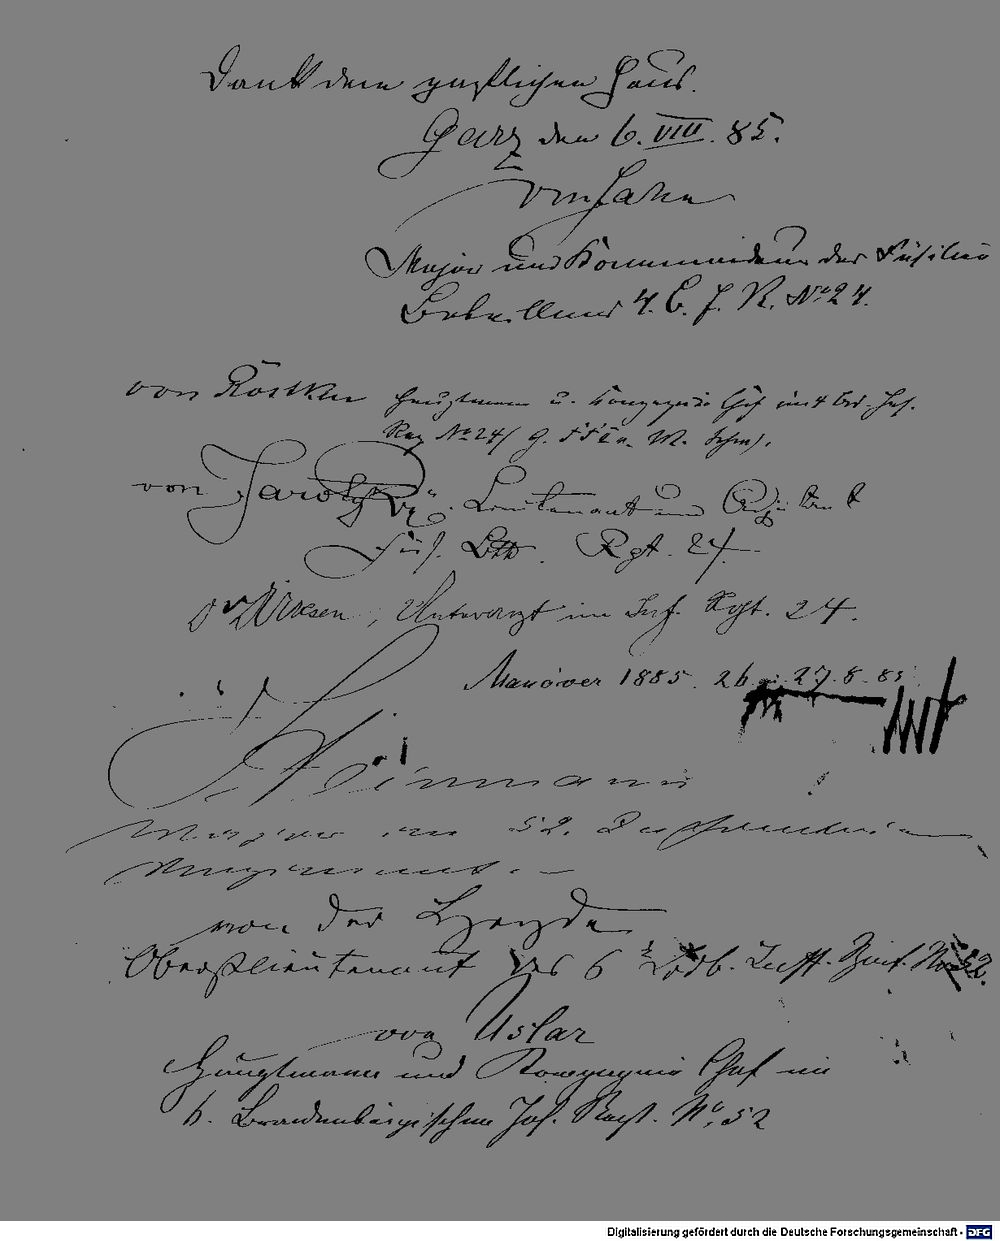 Dank dem gastlichen Haus.
Garz den 6. VIII. 85.
Major und Kommandeur des Füsilier
Bataillons 4. B. I. R. No 24.
von Hauptmann u. Kompagnie Chef im 4 Brd. Inf.
Reg No 24
von Lieutenant und Adjutant
Füs. Btl. Rgt. 24.
Unterarzt im Inf. Rgt. 24.
Manöver 1885. 26 27. 8. 85.
Major im 52. Infanterie
Regiment.
von der Heyde
Oberstlieutenant des 6 Brdb. Inft. Rgt. No 52.
von Uslar
Hauptmann und Kompagnie Chef im
6. Brandenburgischen Inf. Regt. No. 52
Digitalisierung gefördert durch die Deutsche Forschungsgemeinschaft - DFG